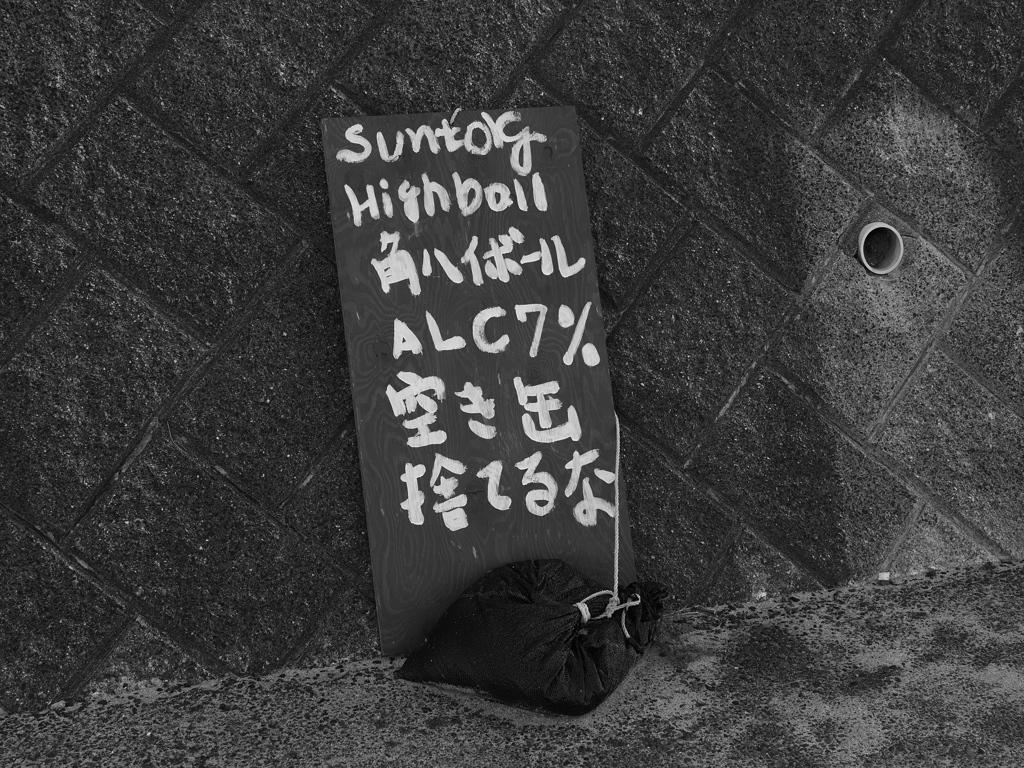 Suntoly
Highball
角ハイボール
ALC7%
空き缶
捨てるな